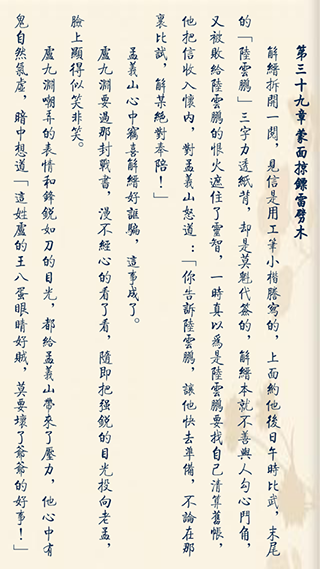 第三十九章蒙面掠鏢雷劈木
解縉拆開一閱，見信是用工筆小楷謄寫的，上面約他後日午時比武，末尾
的「陸雲鵬」三字力透紙背，卻是莫魁代簽的，解縉本就不善與人勾心鬥角，
又被敗給陸雲鵬的恨火遮住了靈智，一時真以爲是陸雲鵬要找自己清算舊帳，
他把信收入懷內，對孟義山怒道：「你告訴陸雲鵬，讓他快去準備，不論在那
裏比試，解某絕對奉陪！」
孟義山心中竊喜解縉好誆騙，這事成了。
盧九淵要過那封戰書，漫不經心的看了看，隨即把強銳的目光投向老孟，
臉上顯得似笑非笑。
盧九淵嘲弄的表情和鋒銳如刀的目光，都給孟義山帶來了壓力，他心中有
鬼自然氣虛，暗中想道「這姓盧的王八蛋眼睛好賊，莫要壞了爺爺的好事！」